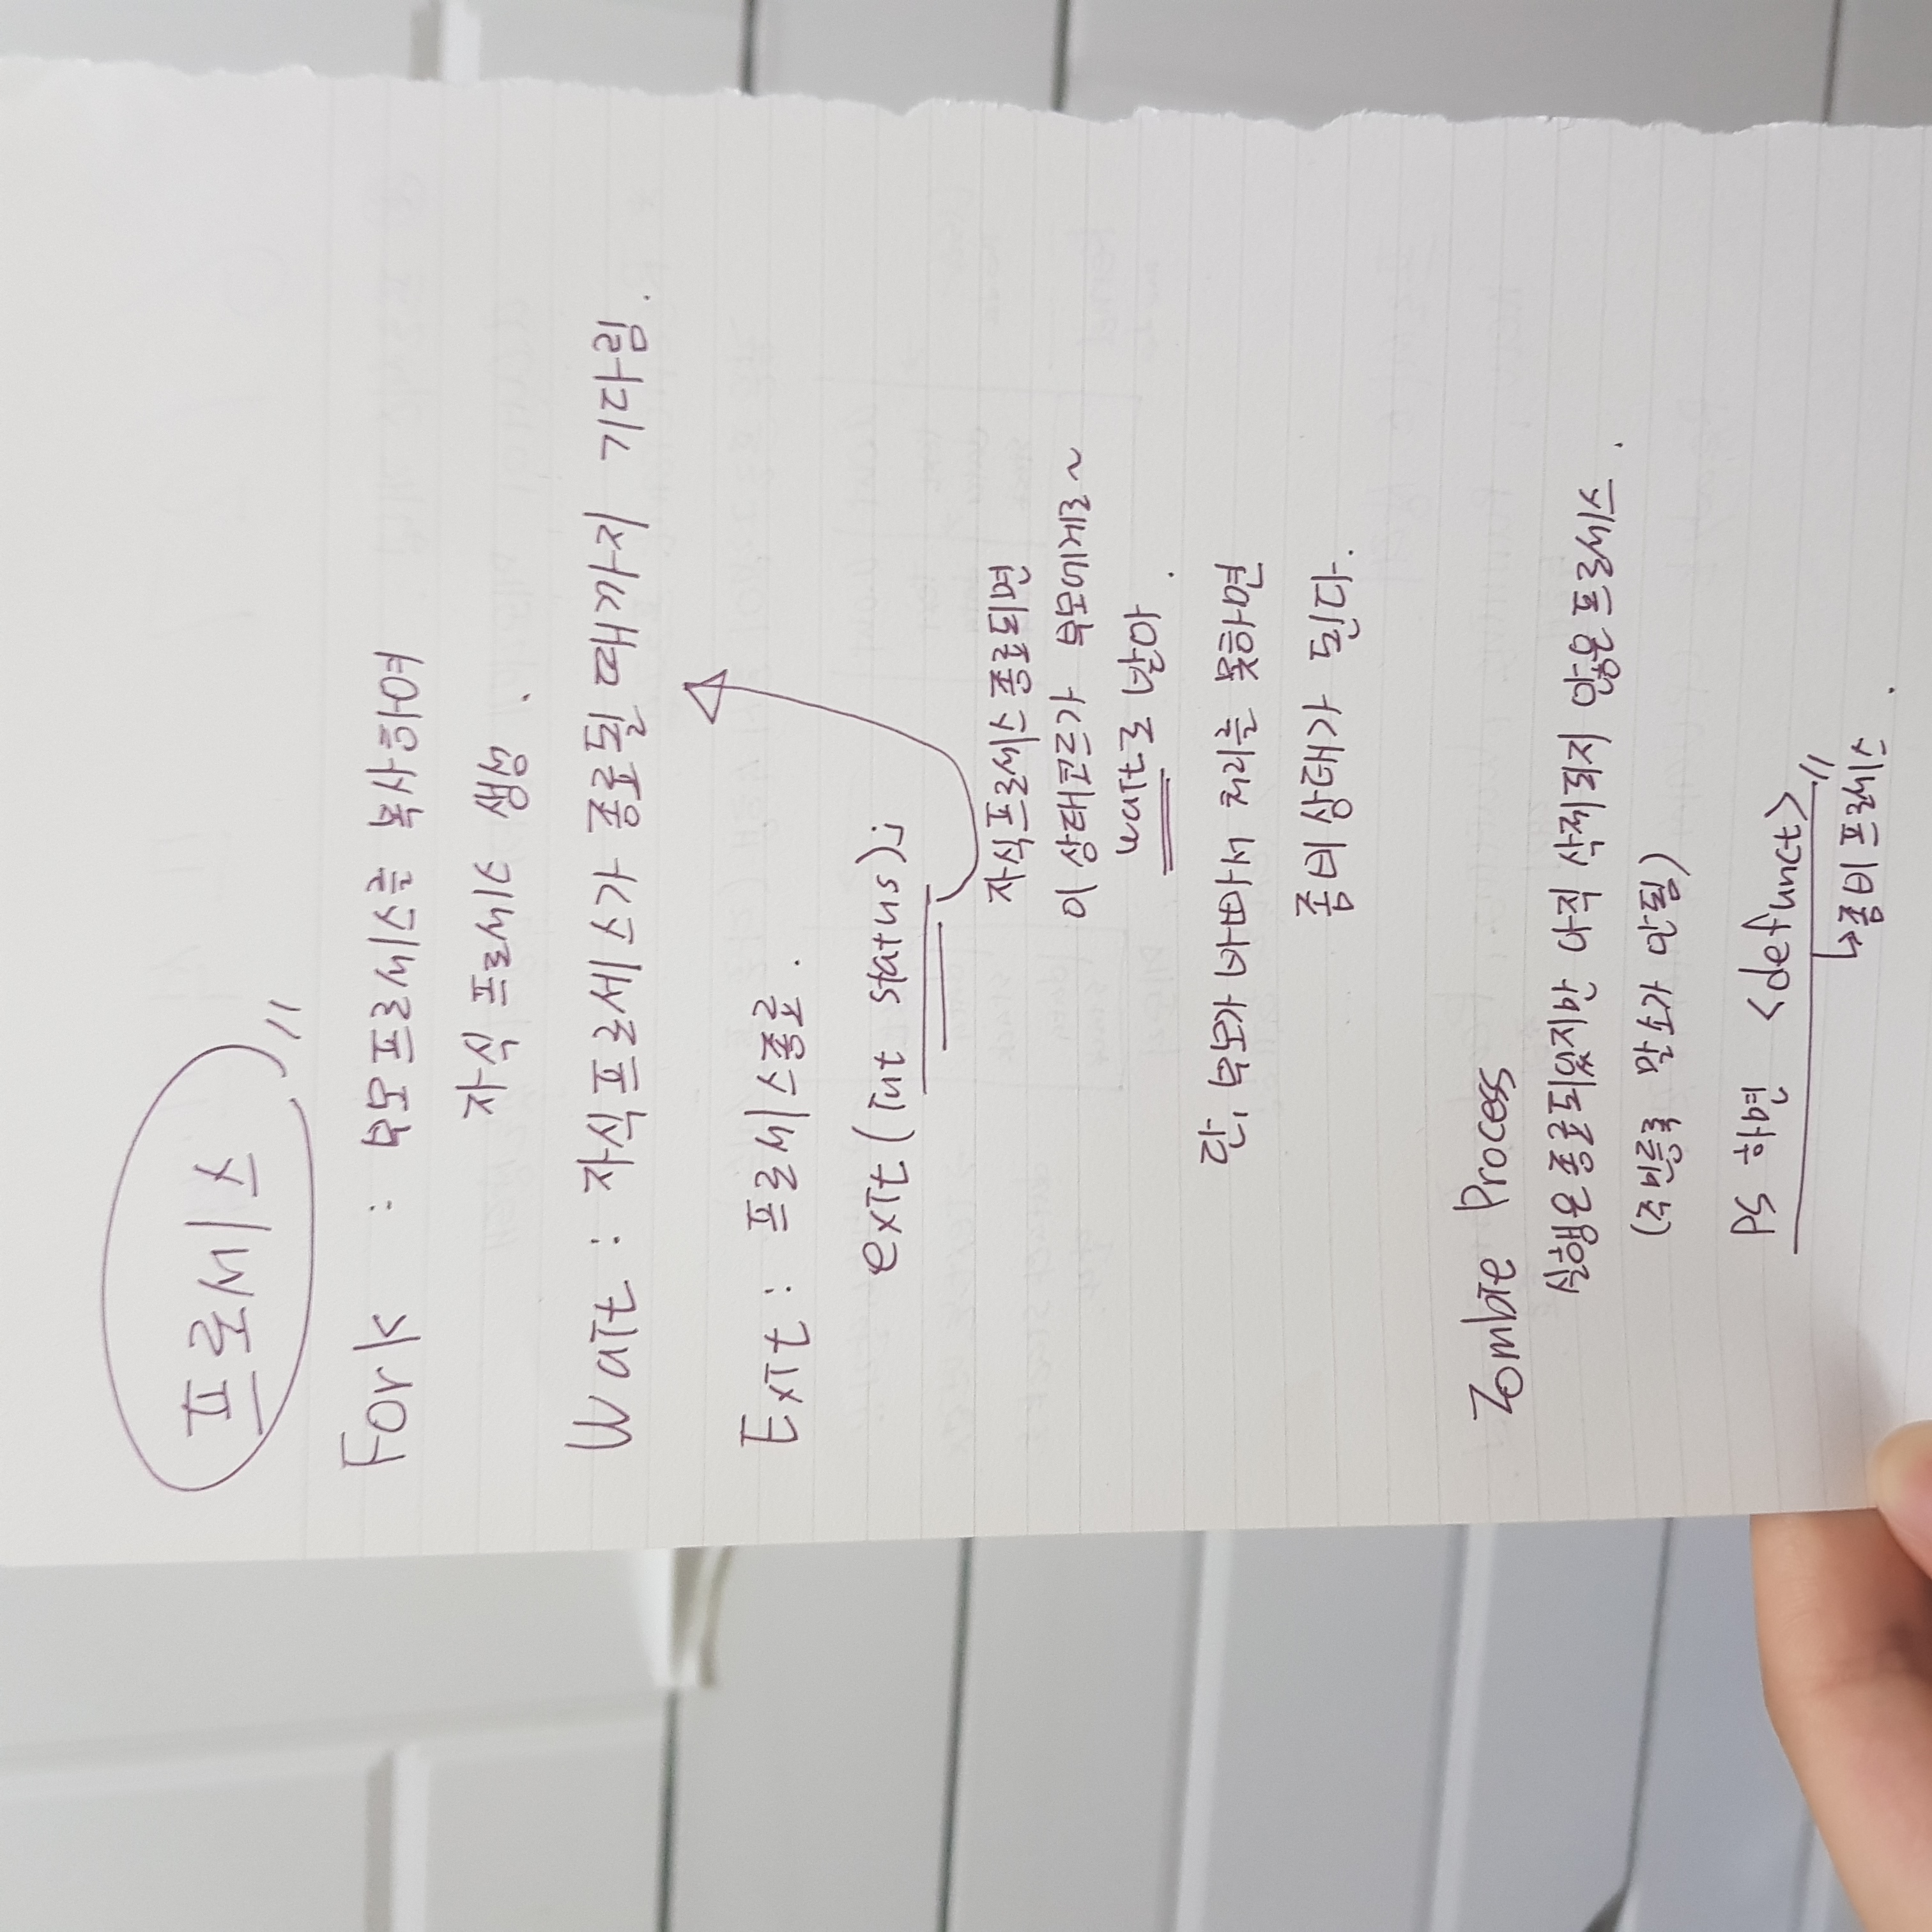 프로세스
Fork : 부모프로세스를 복사하여
자식 프로세스 생성.
Wait : 자식프로세스가 종료될 때까지 기다림.
Exit : 프로세스종료.
exit (int status);
자식프로세스 종료되면
이 상태코드가 부모에게로 ~
wait로 받아.
단, 부모가 바빠서 처리를 못하면
좀비상태가 된다.
Zombie Process
실행은 종료되었지만 아직 삭제되지 않은 프로세스.
(주민등록 말소가 안됨)
PS 하면 <defunct>
↳ 좀비프로세스.